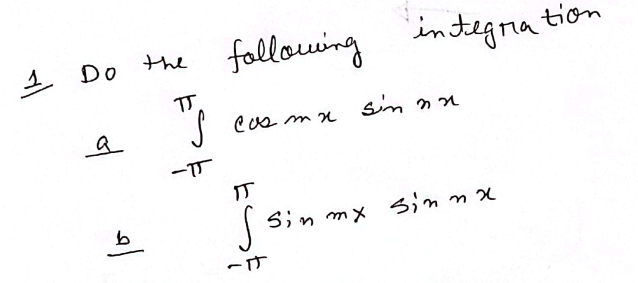 1 Do the following integration
a ∫_{-π}^{π} cos mx sin nx
b ∫_{-π}^{π} sin mx sin nx